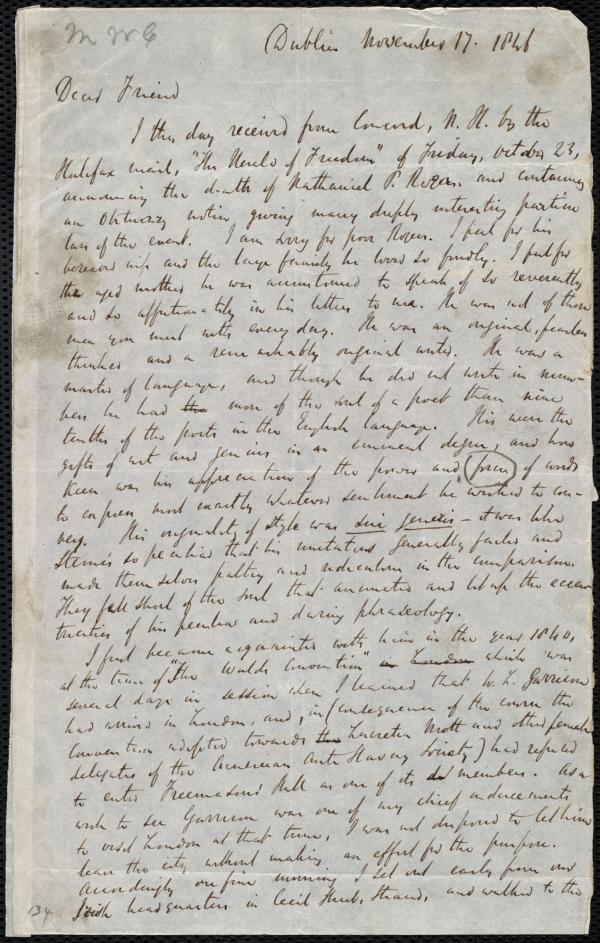 M W C
Dublin November 17. 1846
Dear Friend
I this day received from Concord, N. H. by the
Halifax mail, "The Herald of Freedom" of Friday, October 23,
announcing the death of Nathaniel P. Rogers and containing
an obituary notice giving many deeply interesting particu
lars of the event. I am sorry for poor Rogers. I feel for his
bereaved wife and the large family he loved so fondly. I feel for
the aged mother he was accustomed to speak of so reverently
and so affectionately in his letters to me. He was not of those
men you meet with every day. He was an original, fearless
thinker and a remarkably original writer. He was a
master of language, and though he did not write in num-
bers he had the more of the soul of a poet than nine
tenths of the poets in the English language. His were the
gifts of art and genius in an eminent degree, and how
keen was his appreciation of the power and force of words
to express most exactly whatever sentiment he wished to con-
vey. His originality of style was sui generis - it was like
Sterne's so peculiar that his imitators generally failed and
made themselves paltry and ridiculous in the comparison.
They fell short of the soul that animated and lit up the eccen
tricities of his peculiar and daring phraseology.
I first became acquainted with him in the year 1840,
at the time of "the Worlds Convention" in London which was
several days in session when I learned that W. L. Garrison
had arrived in London, and, in (consequence of the course the
Convention adopted towards the Lucretia Mott and other female
delegates of the American Anti Slavery Society) had refused
to enter Freemasons' Hall as one of its members. As a
wish to see Garrison was one of my chief inducements
to visit London at that time, I was not disposed to let him
leave the city without making an effort for the purpose.
Accordingly one fine morning I set out early from our
Irish headquarters in Cecil Street, Strand, and walked to the
134